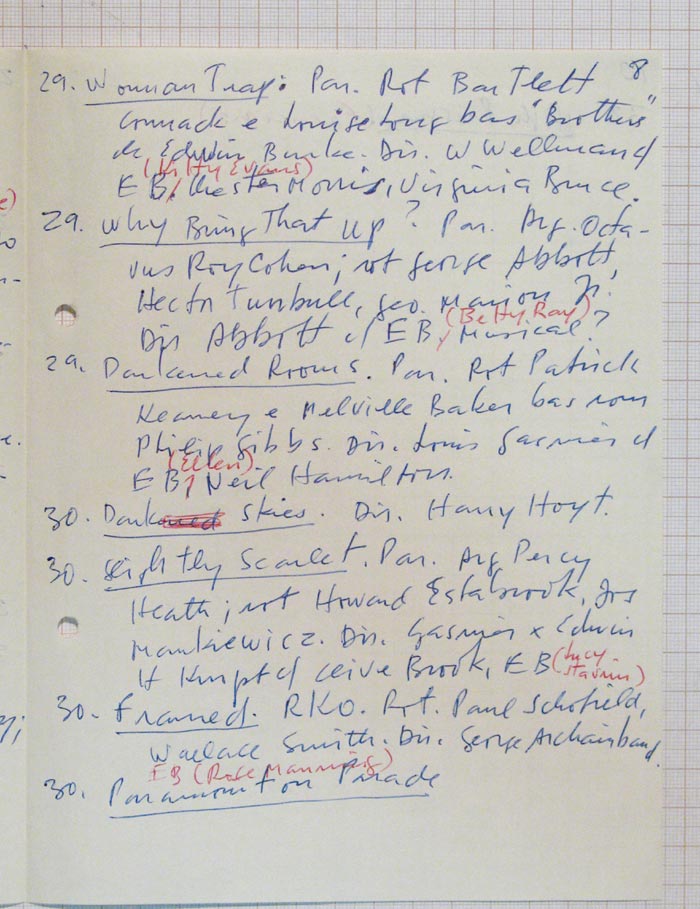 8
29. Woman Trap: Par. Rot Bartlett
Cormack e Louise Long bas "Brothers"
de Edwin Burke. Dir. W Wellman d
(Kitty Evans)
EB, Chester Morris, Virginia Bruce.
29. Why Bring That Up? Par. Arg. Octa-
vus Roy Cohen; rot George Abbott,
Hector Turnbull, Geo. Marion Jr.
(Betty Ray)
Dir Abbott d EB, Musical?
29. Darkened Rooms. Par. Rot Patrick
Kearney e Melville Baker bas rom
Philip Gibbs. Dir. Louis Gasnier d
(Ellen)
EB, Neil Hamilton.
30. Dark Skies. Dir. Harry Hoyt.
30. Slightly Scarlet. Par. Arg Percy
Heath; rot Howard Estabrook, Jos
Mankiewicz. Dir. Gasnier x Edwin
H Knopf d Clive Brook, EB (Lucy
Stavrin)
30. Framed. RKO. Rot. Paul Schofield,
Wallace Smith. Dir. George Archainbaud.
EB (Rose Manning)
30. Paramount on Parade